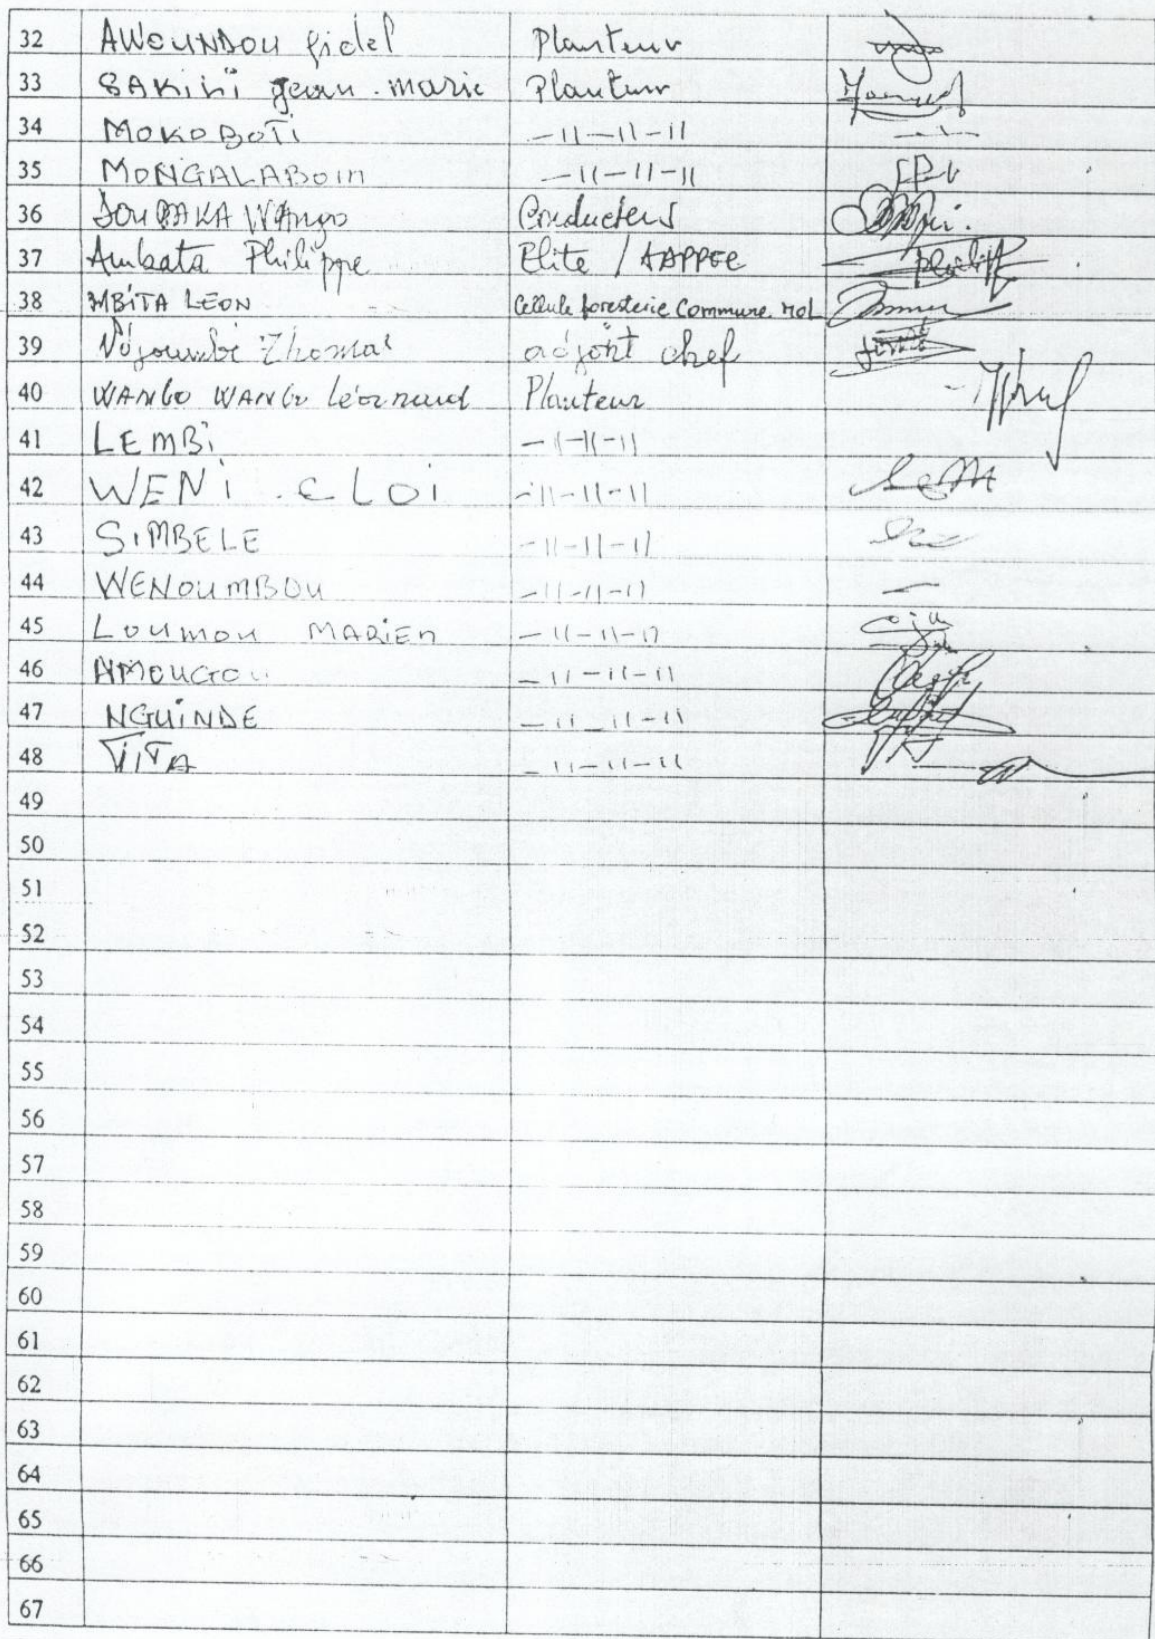 32 AWOUNDOU fidel Planteur
33 SAKINI jean-marie Planteur
34 MOKOBOTI -11-11-11
35 MONGALABOIN -11-11-11
36 DOUBAKA WAngo Conducteur
37 Ambata Philippe Elite / AAPPEE
38 MBITA LEON Cellule foresterie Commune MOL
39 Ndjoumbi Thomas adjoint chef
40 WANGO WANGO Léornard Planteur
41 LEMBi -11-11-11
42 WENI CLOI -11-11-11
43 SIMBELE -11-11-11
44 WENOUMBOU -11-11-11
45 LOUMOU MARIEN -11-11-11
46 AMOUGOU -11-11-11
47 NGUINDE -11-11-11
48 TITA -11-11-11
49
50
51
52
53
54
55
56
57
58
59
60
61
62
63
64
65
66
67